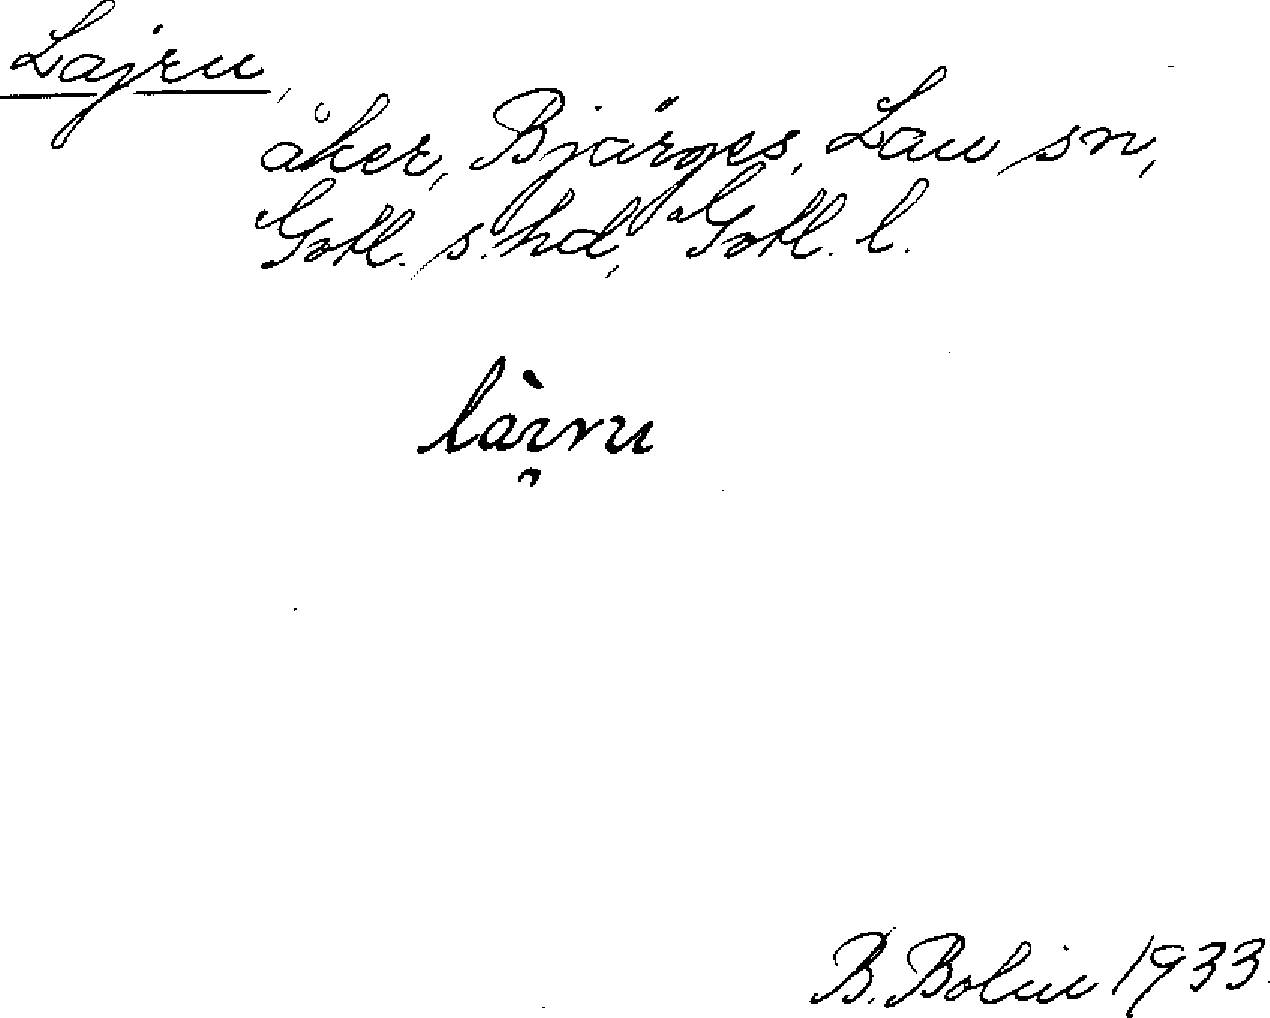 Lajru,
åker, Bjärges, Lau sn,
Gotl. s. hd, Gotl. l.
làı̯ru
B. Bolin 1933.